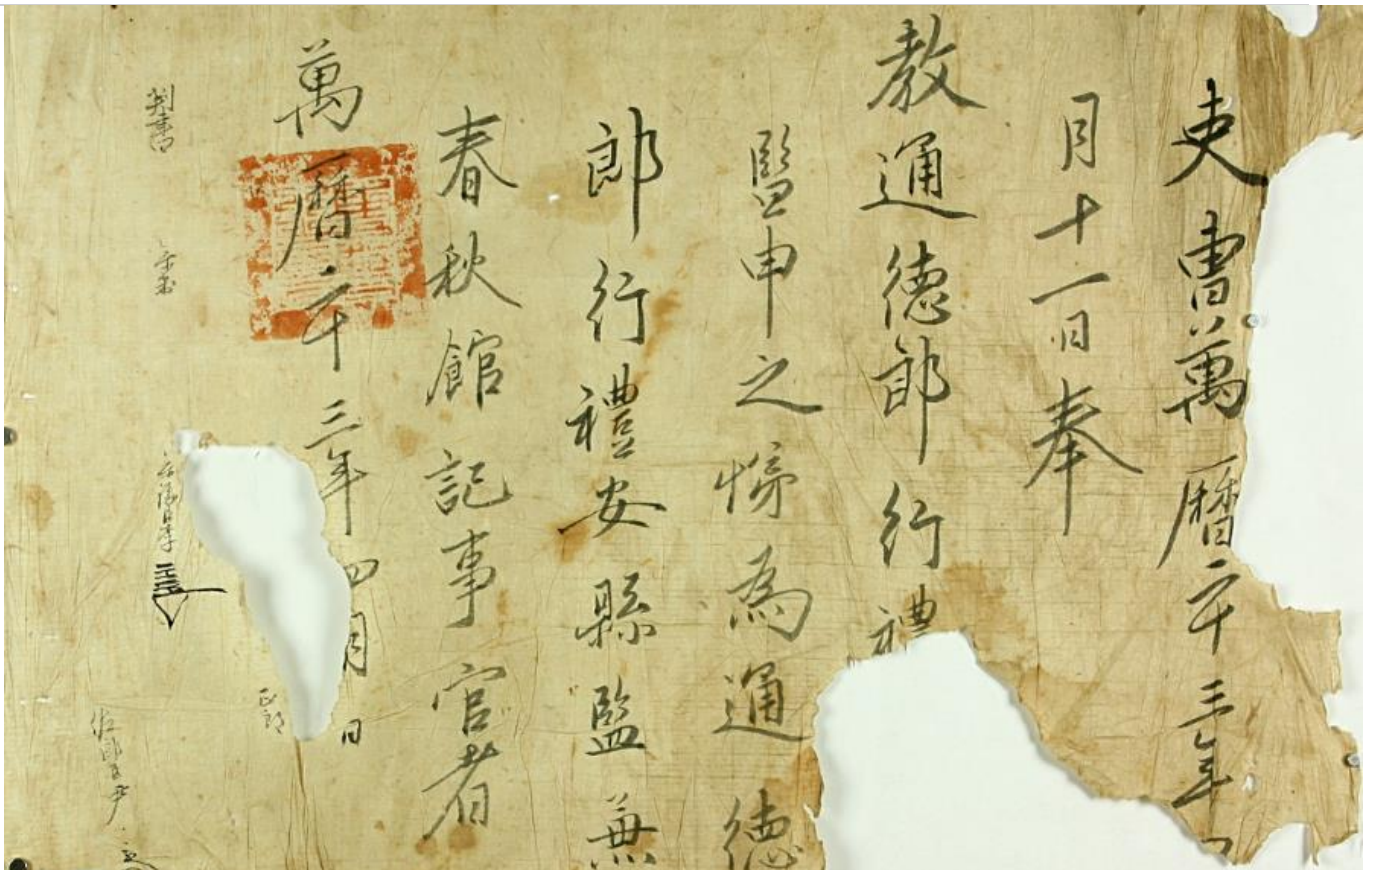 吏曹萬曆二十三年
月十一日奉
教通德郎行禮
監申之悌為通德
郎行禮安縣監兼
春秋館記事官者
萬曆二十三年四月 日
判書
正郎
佐郎